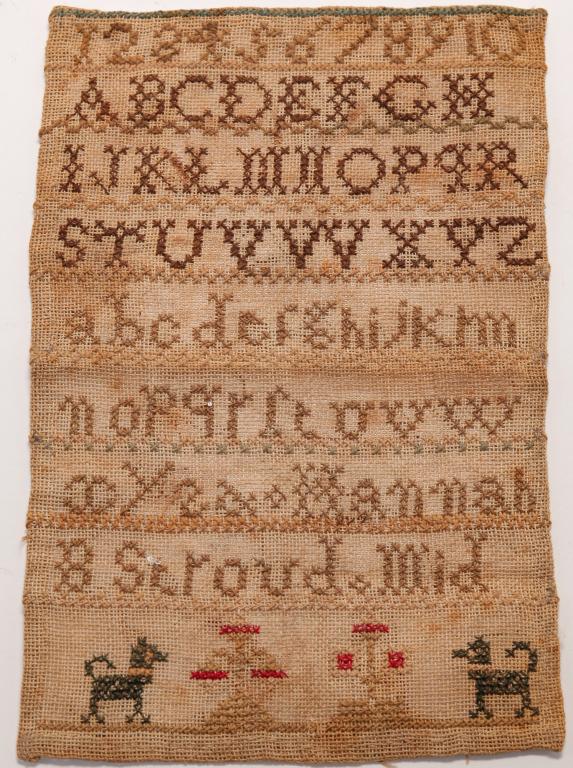 1 2 3 4 5 6 7 8 9 10
A B C D E F G H
I J K L M N O P Q R
S T U V W X Y Z
a b c d e f g h i j k l m
n o p q r ſ t u v w
x y z & Hannah
B Stroud Mid